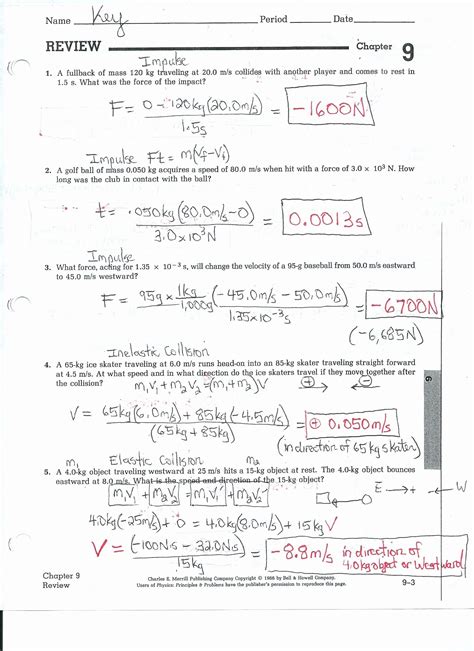 Name Key Period Date
REVIEW Chapter 9
Impulse
1. A fullback of mass 120 kg traveling at 20.0 m/s collides with another player and comes to rest in
1.5 s. What was the force of the impact?
F = 0 - 120kg(20.0m/s) / 1.5s = -1600N
Impulse Ft = m(Vf - Vi)
2. A golf ball of mass 0.050 kg acquires a speed of 80.0 m/s when hit with a force of 3.0 × 10³ N. How
long was the club in contact with the ball?
t = .050kg(80.0m/s - 0) / 3.0×10³N = 0.0013s
Impulse
3. What force, acting for 1.35 × 10⁻³ s, will change the velocity of a 95-g baseball from 50.0 m/s eastward
to 45.0 m/s westward?
F = 95g × 1kg / 1,000g (-45.0m/s - 50.0m/s) / 1.35×10⁻³s = -6700N
(-6,685N)
Inelastic Collision
4. A 65-kg ice skater traveling at 6.0 m/s runs head-on into an 85-kg skater traveling straight forward
at 4.5 m/s. At what speed and in what direction do the ice skaters travel if they move together after
the collision? m₁V₁ + m₂V₂ = (m₁+m₂)V
V = 65kg(6.0m/s) + 85kg(-4.5m/s) / (65kg + 85kg) = ⊕ 0.050m/s
(in direction of 65kg skater)
m₁ Elastic Collision m₂
5. A 4.0-kg object traveling westward at 25 m/s hits a 15-kg object at rest. The 4.0-kg object bounces
eastward at 8.0 m/s. What is the speed and direction of the 15-kg object?
m₁V₁ + m₂V₂ = m₁V₁' + m₂V₂' E → + ← W
4.0kg(-25m/s) + 0 = 4.0kg(8.0m/s) + 15kg V
V = (-100Ns - 32.0Ns) / 15kg = -8.8m/s in direction of
4.0kg object or Westward
Chapter 9
Review
Charles E. Merrill Publishing Company Copyright © 1986 by Bell & Howell Company.
Users of Physics: Principles & Problems have the publisher's permission to reproduce this page.
9–3
9